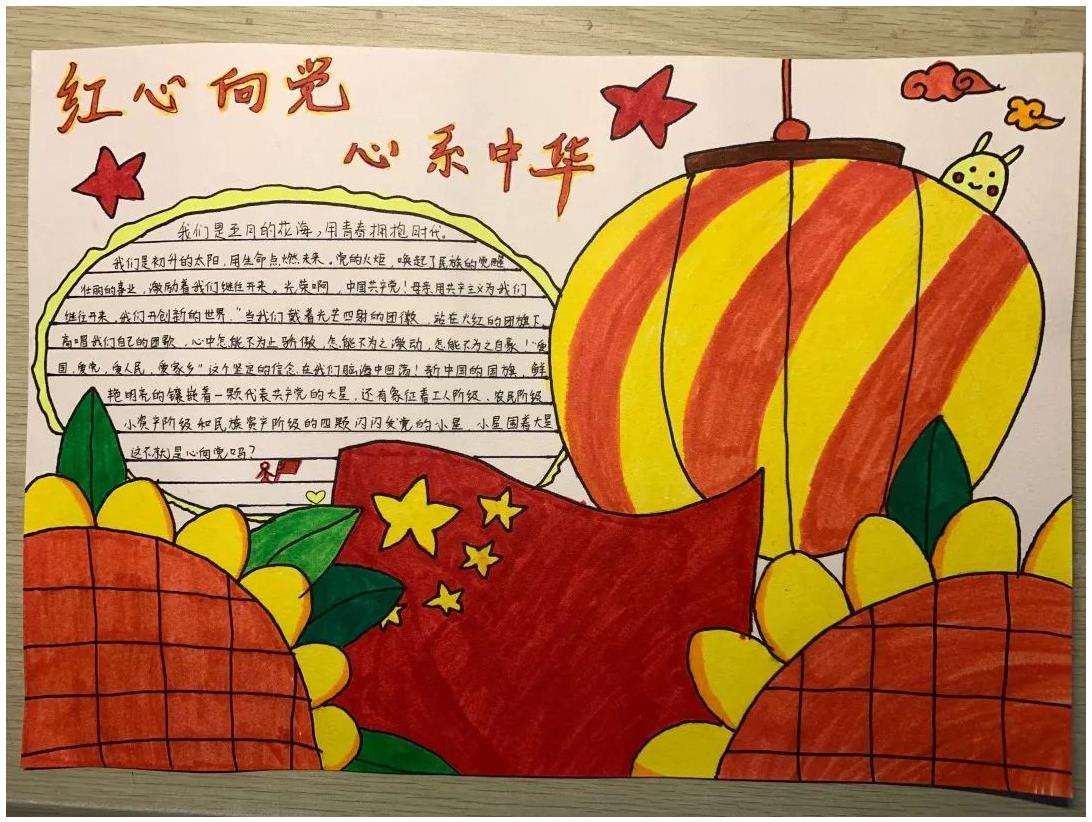 红心向党
心系中华
我们是五月的花海，用青春拥抱时代。
我们是初升的太阳，用生命点燃未来。党的火炬，唤起了民族的觉醒
壮丽的事业，激励着我们继往开来。光荣啊，中国共产党！母亲用共产主义为我们
继往开来，我们开创新的世界，"当我们戴着光芒四射的团徽，站在火红的团旗下
高唱我们自己的团歌，心中怎能不为止骄傲，怎能不为之激动，怎能不为之自豪！"爱
国，爱党，爱人民，爱家乡"这个坚定的信念在我们脑海中回荡！新中国的国旗，鲜
艳明亮的镶嵌着一颗代表共产党的大星，还有象征着工人阶级、农民阶级
小资产阶级和民族资产阶级的四颗闪闪发亮的小星，小星围着大星
这不就是心向党吗？